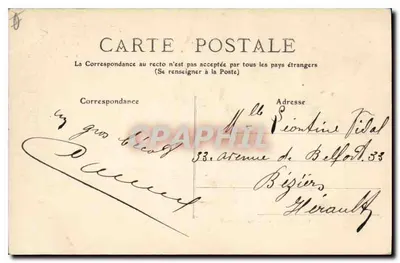 CARTE POSTALE
La Correspondance au recto n'est pas acceptée par tous les pays étrangers
(Se renseigner à la Poste)
Correspondance
Adresse
un gros bécot
Mlle Léontine Vidal
33. avenue de Belfort. 33
Béziers
Hérault